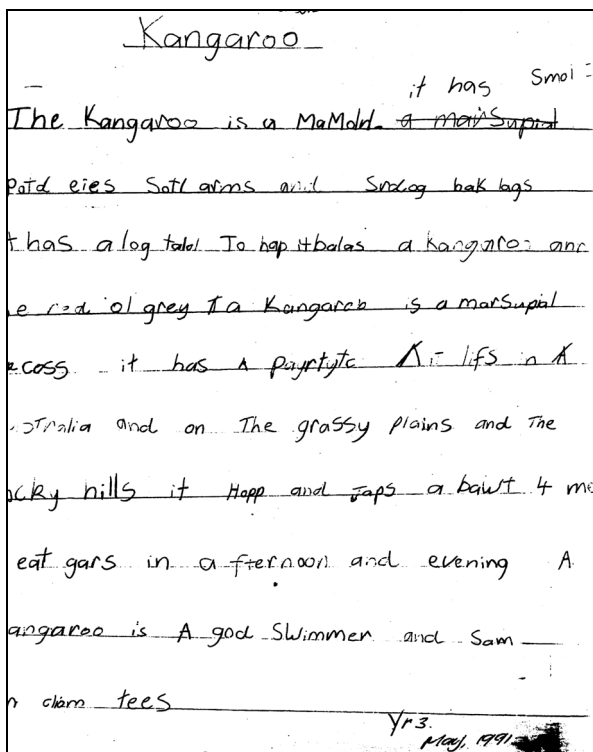 Kangaroo
it has Smol
The Kangaroo is a MaMold a marSupial
Potd eies Sotl arms and Sndog bak lags
t has a log talol To hap itbalas a Kangaroo and
e red ol grey a Kangaroo is a marSupial
ecoss it has A payrtytc it lifs n A
stralia and on The grassy plains and The
ocky hills it Hopp and Japs a bawt 4 me
eat gars in a fternoon and evening A
angaroo is A god Swimmer and Sam
n cliam tees
Yr 3.
May, 1991